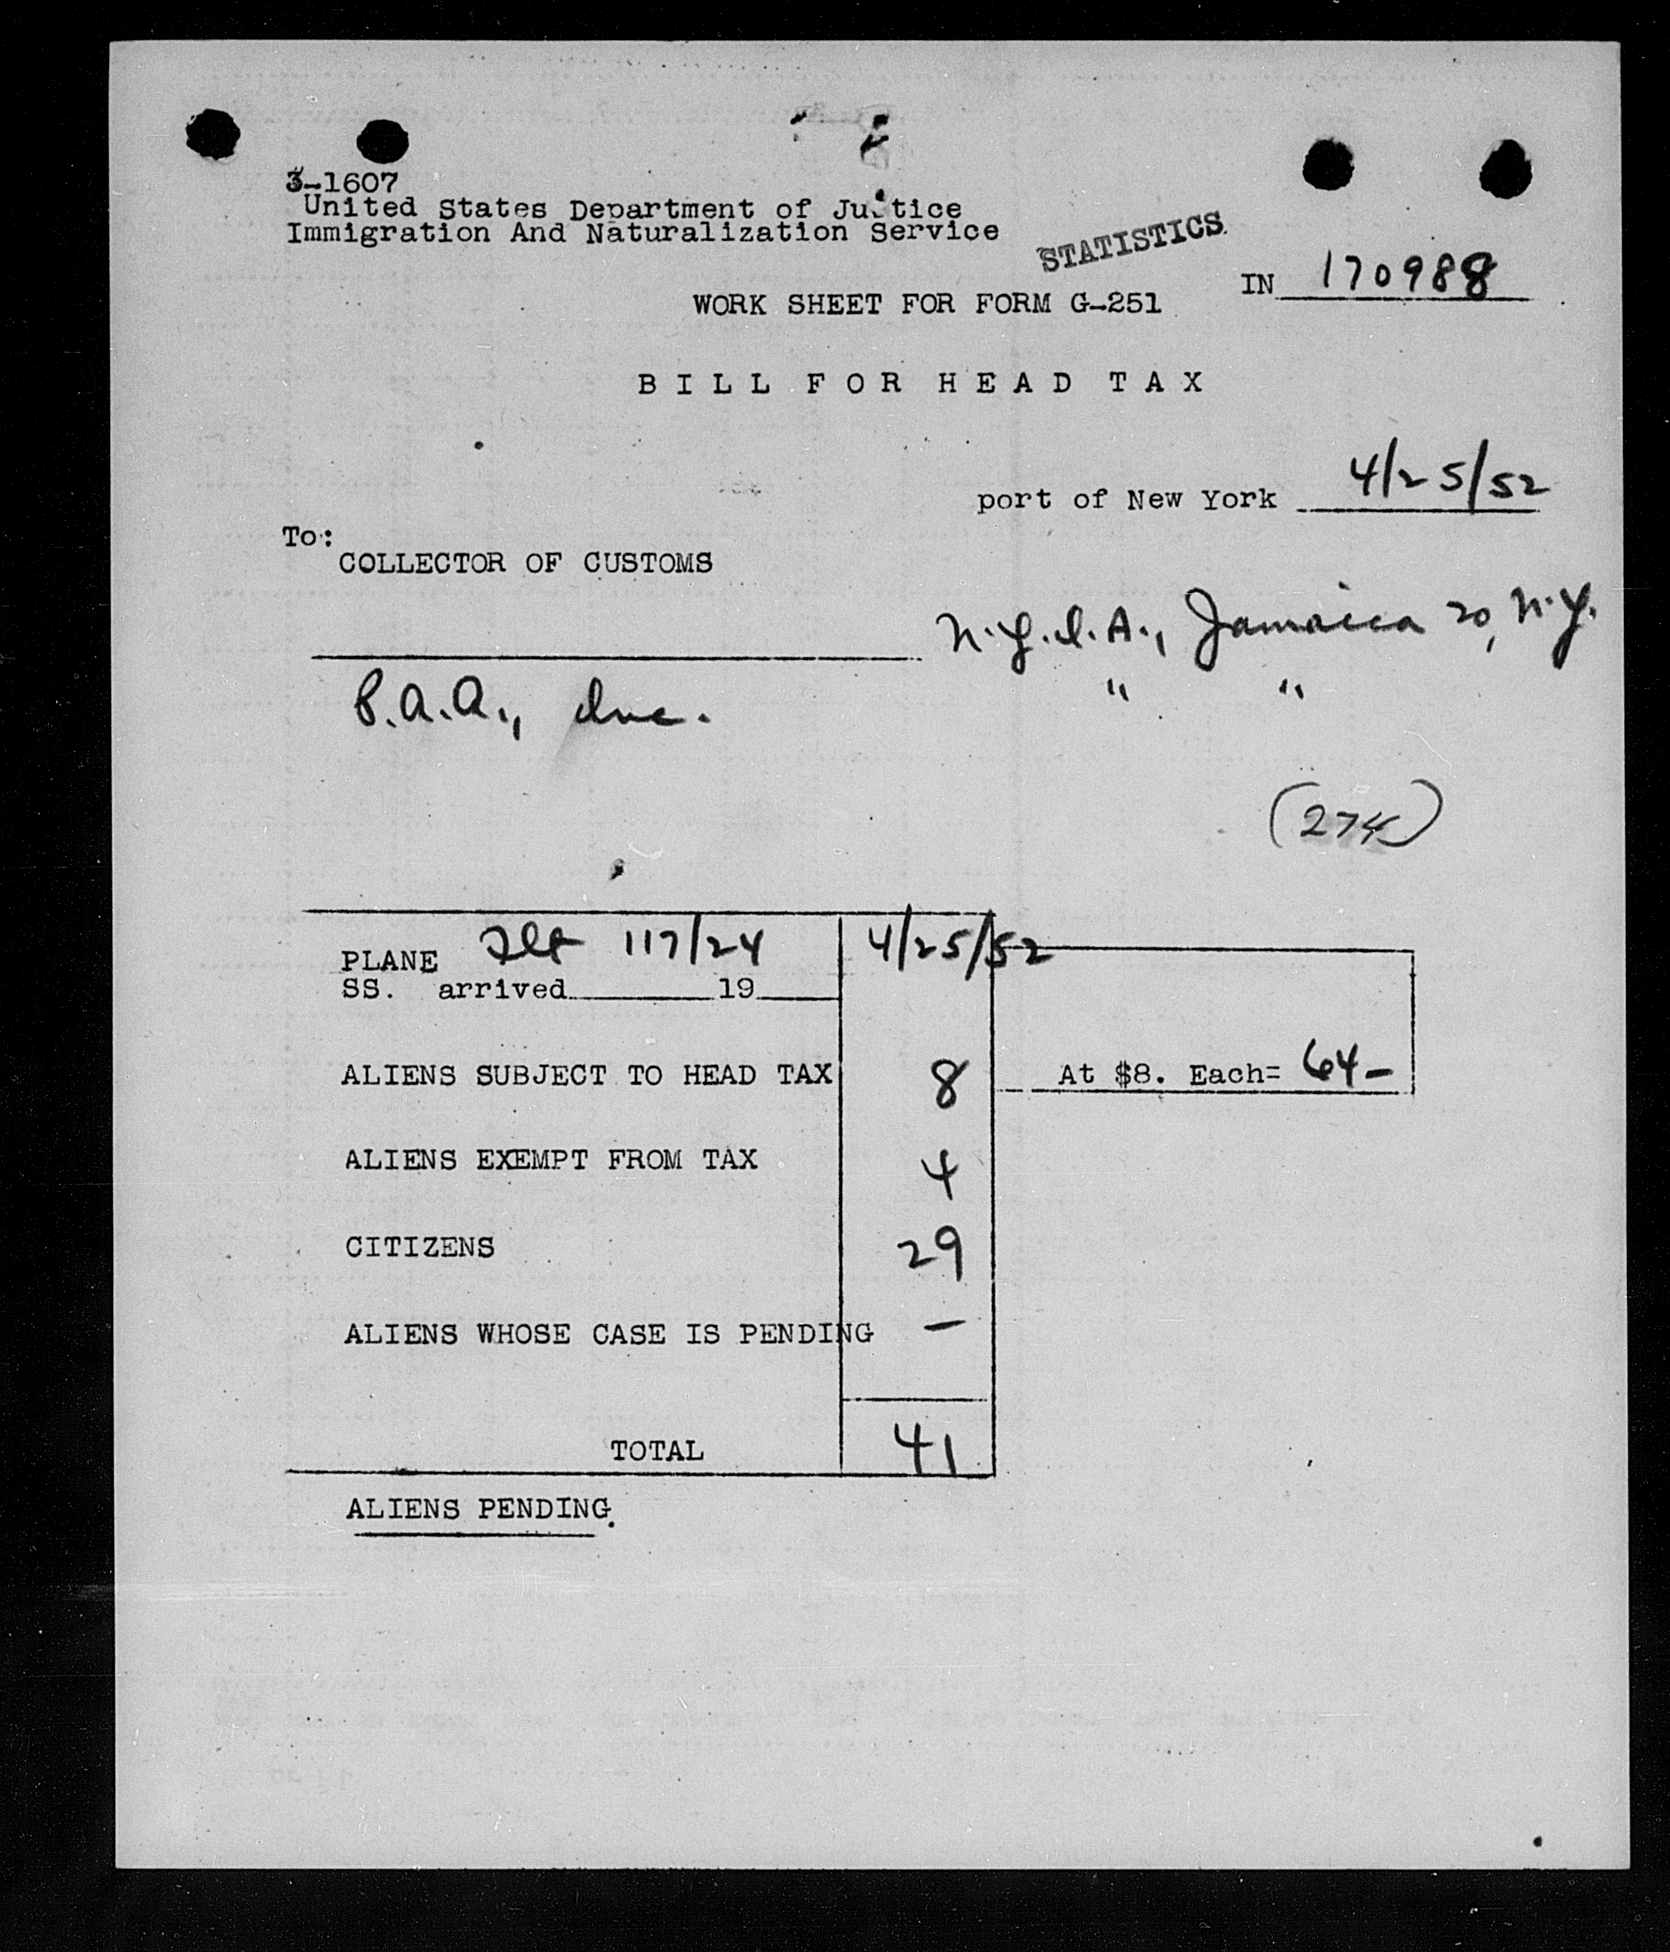 3-1607
United States Department of Justice
Immigration And Naturalization Service
STATISTICS
IN 170988
WORK SHEET FOR FORM G-251
BILL FOR HEAD TAX
port of New York 4/25/52
To:
COLLECTOR OF CUSTOMS
N.Y.I.A., Jamaica 20, N.Y.
P.A.A., Inc. " "
(274)
PLANE Flt 117/24 4/25/52
SS. arrived 19
ALIENS SUBJECT TO HEAD TAX 8 At $8. Each= 64-
ALIENS EXEMPT FROM TAX 4
CITIZENS 29
ALIENS WHOSE CASE IS PENDING -
TOTAL 41
ALIENS PENDING.